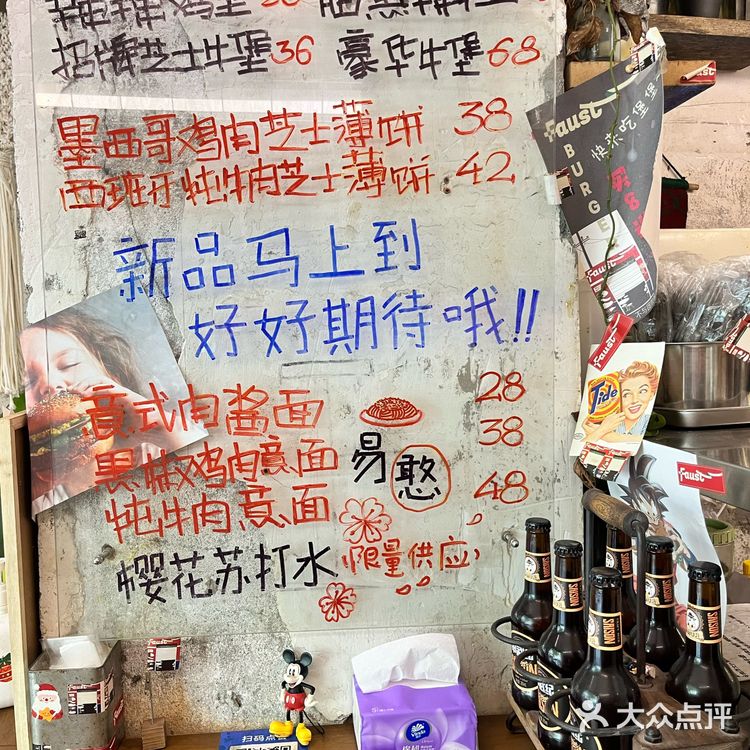 招牌芝士牛堡36 豪华牛堡68
墨西哥鸡肉芝士薄饼 38
西班牙炖牛肉芝士薄饼 42
新品马上到
好好期待哦!!
意式肉酱面 28
黑椒鸡肉意面 38
炖牛肉意面 48
易憨
樱花苏打水 限量供应
Faust
BURGE
快来吃堡堡
Tide
Faust
Faust
扫码点
Vinda
SIMSON
SIMSON
大众点评